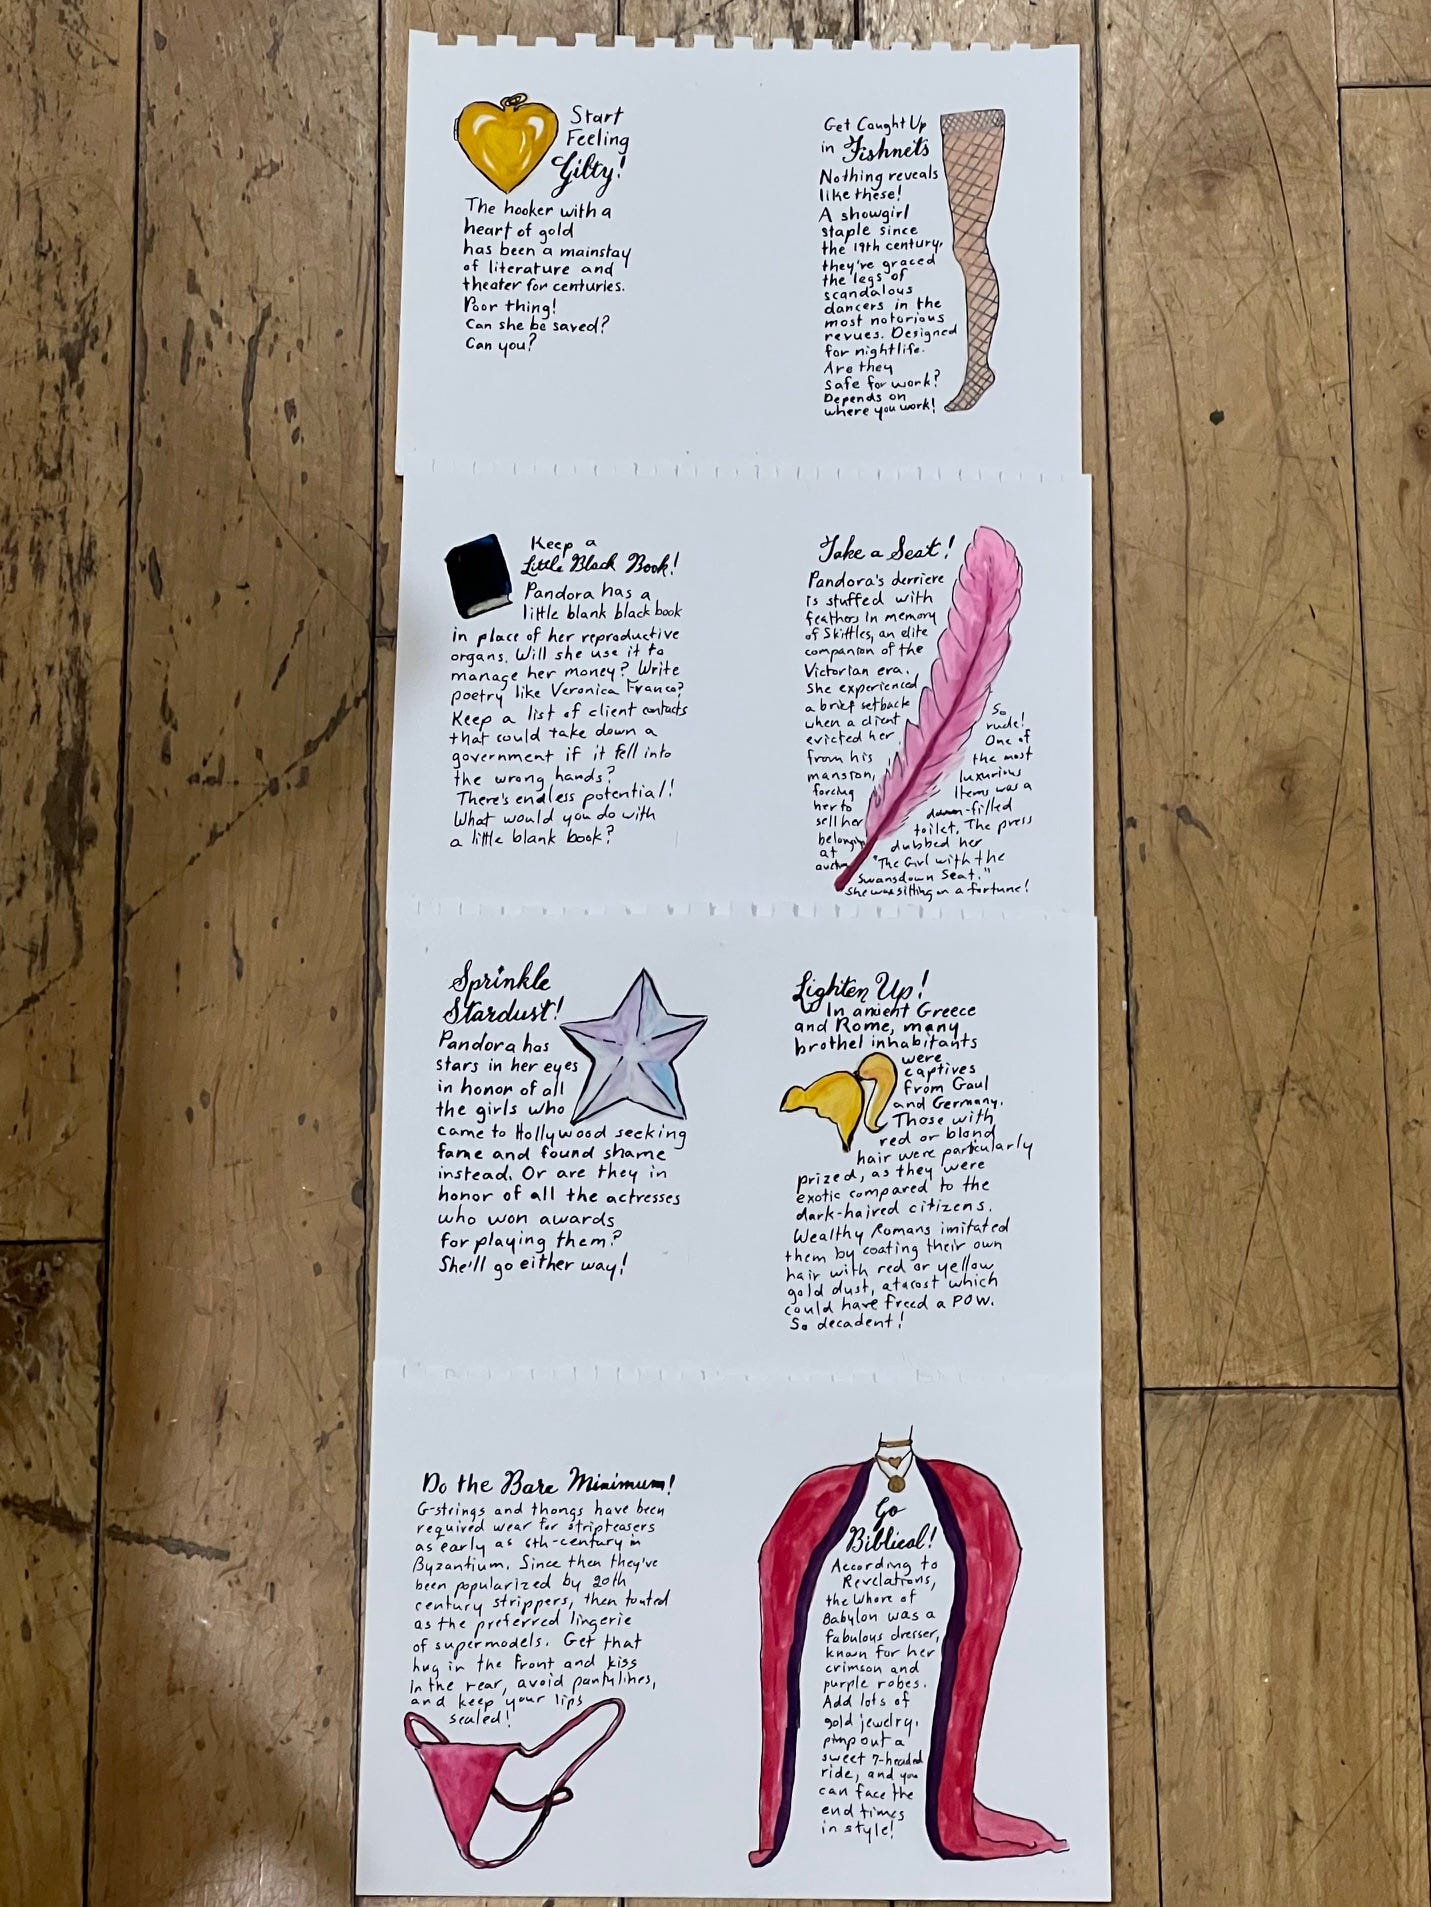 Start
Feeling
Gilty!
The hooker with a
heart of gold
has been a mainstay
of literature and
theater for centuries.
Poor thing!
Can she be saved?
Can you?
Get Caught Up
in Fishnets
Nothing reveals
like these!
A showgirl
staple since
the 19th century,
they've graced
the legs of
scandalous
dancers in the
most notorious
revues. Designed
for nightlife.
Are they
safe for work?
Depends on
where you work!
Keep a
Little Black Book!
Pandora has a
little blank black book
in place of her reproductive
organs. Will she use it to
manage her money? Write
poetry like Veronica Franco?
Keep a list of client contacts
that could take down a
government if it fell into
the wrong hands?
There's endless potential!
What would you do with
a little blank book?
Take a Seat!
Pandora's derriere
is stuffed with
feathers in memory
of Skittles, an elite
companion of the
Victorian era.
She experienced
a brief setback
when a client
evicted her
from his
mansion,
forcing
her to
sell her
belongings
at
auction.
So
rude!
One of
the most
luxurious
items was a
down-filled
toilet. The press
dubbed her
"The Girl with the
Swansdown Seat."
She was sitting on a fortune!
Sprinkle
Stardust!
Pandora has
stars in her eyes
in honor of all
the girls who
came to Hollywood seeking
fame and found shame
instead. Or are they in
honor of all the actresses
who won awards
for playing them?
She'll go either way!
Lighten Up!
In ancient Greece
and Rome, many
brothel inhabitants
were
captives
from Gaul
and Germany.
Those with
red or blond
hair were particularly
prized, as they were
exotic compared to the
dark-haired citizens.
Wealthy Romans imitated
them by coating their own
hair with red or yellow
gold dust, at a cost which
could have freed a POW.
So decadent!
Do the Bare Minimum!
G-strings and thongs have been
required wear for stripteasers
as early as 6th-century in
Byzantium. Since then they've
been popularized by 20th
century strippers, then touted
as the preferred lingerie
of supermodels. Get that
hug in the front and kiss
in the rear, avoid pantylines,
and keep your lips
sealed!
Go
Biblical!
According to
Revelations,
the Whore of
Babylon was a
fabulous dresser,
known for her
crimson and
purple robes.
Add lots of
gold jewelry,
pimp out a
sweet 7-headed
ride, and you
can face the
end times
in style!